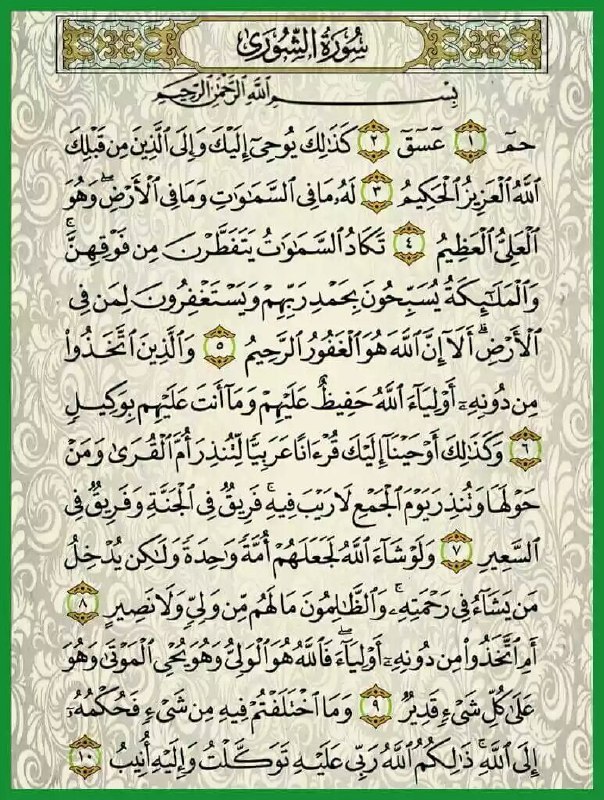 سُورَةُ الشُّورَىٰ
بِسْمِ اللَّهِ الرَّحْمَٰنِ الرَّحِيمِ
حمٓ ١ عٓسٓقٓ ٢ كَذَٰلِكَ يُوحِىٓ إِلَيْكَ وَإِلَى ٱلَّذِينَ مِن قَبْلِكَ
ٱللَّهُ ٱلْعَزِيزُ ٱلْحَكِيمُ ٣ لَهُۥ مَا فِى ٱلسَّمَٰوَٰتِ وَمَا فِى ٱلْأَرْضِ ۖ وَهُوَ
ٱلْعَلِىُّ ٱلْعَظِيمُ ٤ تَكَادُ ٱلسَّمَٰوَٰتُ يَتَفَطَّرْنَ مِن فَوْقِهِنَّ ۚ
وَٱلْمَلَٰٓئِكَةُ يُسَبِّحُونَ بِحَمْدِ رَبِّهِمْ وَيَسْتَغْفِرُونَ لِمَن فِى
ٱلْأَرْضِ ۗ أَلَآ إِنَّ ٱللَّهَ هُوَ ٱلْغَفُورُ ٱلرَّحِيمُ ٥ وَٱلَّذِينَ ٱتَّخَذُوا۟
مِن دُونِهِۦٓ أَوْلِيَآءَ ٱللَّهُ حَفِيظٌ عَلَيْهِمْ وَمَآ أَنتَ عَلَيْهِم بِوَكِيلٍ
٦ وَكَذَٰلِكَ أَوْحَيْنَآ إِلَيْكَ قُرْءَانًا عَرَبِيًّا لِّتُنذِرَ أُمَّ ٱلْقُرَىٰ وَمَنْ
حَوْلَهَا وَتُنذِرَ يَوْمَ ٱلْجَمْعِ لَا رَيْبَ فِيهِ ۚ فَرِيقٌ فِى ٱلْجَنَّةِ وَفَرِيقٌ فِى
ٱلسَّعِيرِ ٧ وَلَوْ شَآءَ ٱللَّهُ لَجَعَلَهُمْ أُمَّةً وَٰحِدَةً وَلَٰكِن يُدْخِلُ
مَن يَشَآءُ فِى رَحْمَتِهِۦ ۚ وَٱلظَّٰلِمُونَ مَا لَهُم مِّن وَلِىٍّ وَلَا نَصِيرٍ ٨
أَمِ ٱتَّخَذُوا۟ مِن دُونِهِۦٓ أَوْلِيَآءَ ۖ فَٱللَّهُ هُوَ ٱلْوَلِىُّ وَهُوَ يُحْىِ ٱلْمَوْتَىٰ وَهُوَ
عَلَىٰ كُلِّ شَىْءٍ قَدِيرٌ ٩ وَمَا ٱخْتَلَفْتُمْ فِيهِ مِن شَىْءٍ فَحُكْمُهُۥٓ
إِلَى ٱللَّهِ ۚ ذَٰلِكُمُ ٱللَّهُ رَبِّى عَلَيْهِ تَوَكَّلْتُ وَإِلَيْهِ أُنِيبُ ١٠